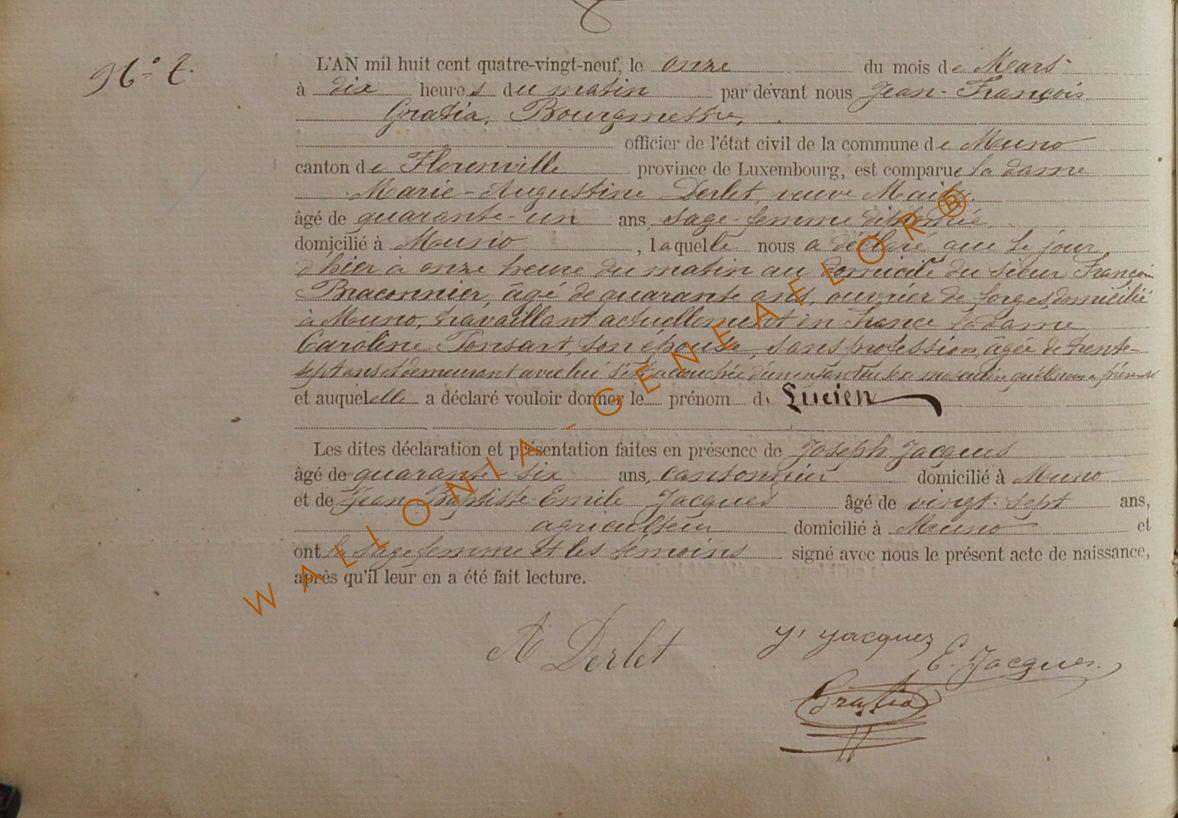 L'AN mil huit cent quatre-vingt-neuf, le onze du mois de Mars
à dix heures du matin par devant nous Jean-François
Gratia, Bourgmestre,
officier de l'état civil de la commune de Muno
canton de Florenville province de Luxembourg, est comparue la dame
Marie-Augustine Derlet, veuve
âgé de quarante-un ans, sage-femme diplomée
domicilié à Muno, laquelle nous a déclaré que le jour
d'hier à onze heure du matin au domicile du sieur François
Braconnier, âgé de quarante ans, ouvrier de forges, domicilié
à Muno, travaillant actuellement en France la dame
Caroline Ponsart, son épouse, sans profession, âgée de trente-
sept ans et demeurant avec lui s'est accouchée d'un enfant du sexe masculin qu'elle nous a présenté
et auquel elle a déclaré vouloir donner le prénom de Lucien
Les dites déclaration et présentation faites en présence de Joseph Jacques
âgé de quarante-six ans, cantonnier domicilié à Muno
et de Jean Baptiste Emile Jacques âgé de vingt-sept ans,
agriculteur domicilié à Muno et
ont la sage femme et les témoins signé avec nous le présent acte de naissance,
après qu'il leur en a été fait lecture.
A Derlet
J. Jacques
E. Jacques.
Gratia
WALLONIA-GENEAFLOR®